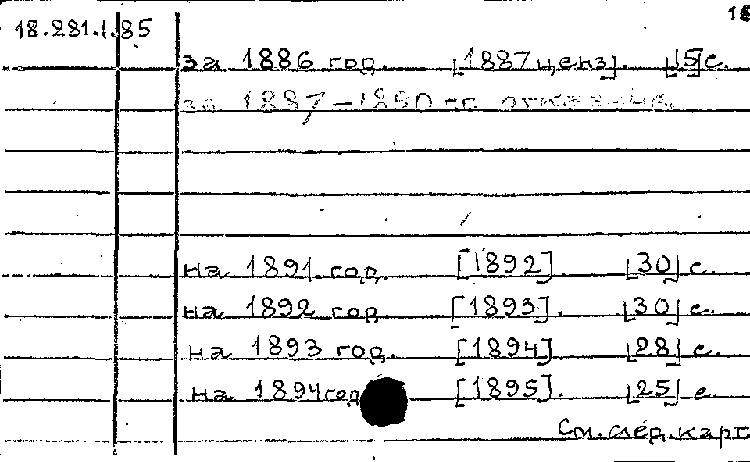 18.281.1.85
за 1886 год. [1887 ценз]. [5] с.
за 1887-1890 гг.
на 1891 год. [1892]. [30] с.
на 1892 год [1893]. [30] с.
на 1893 год. [1894] [28] с.
на 1894 год [1895]. [25] с.
См. след. карт